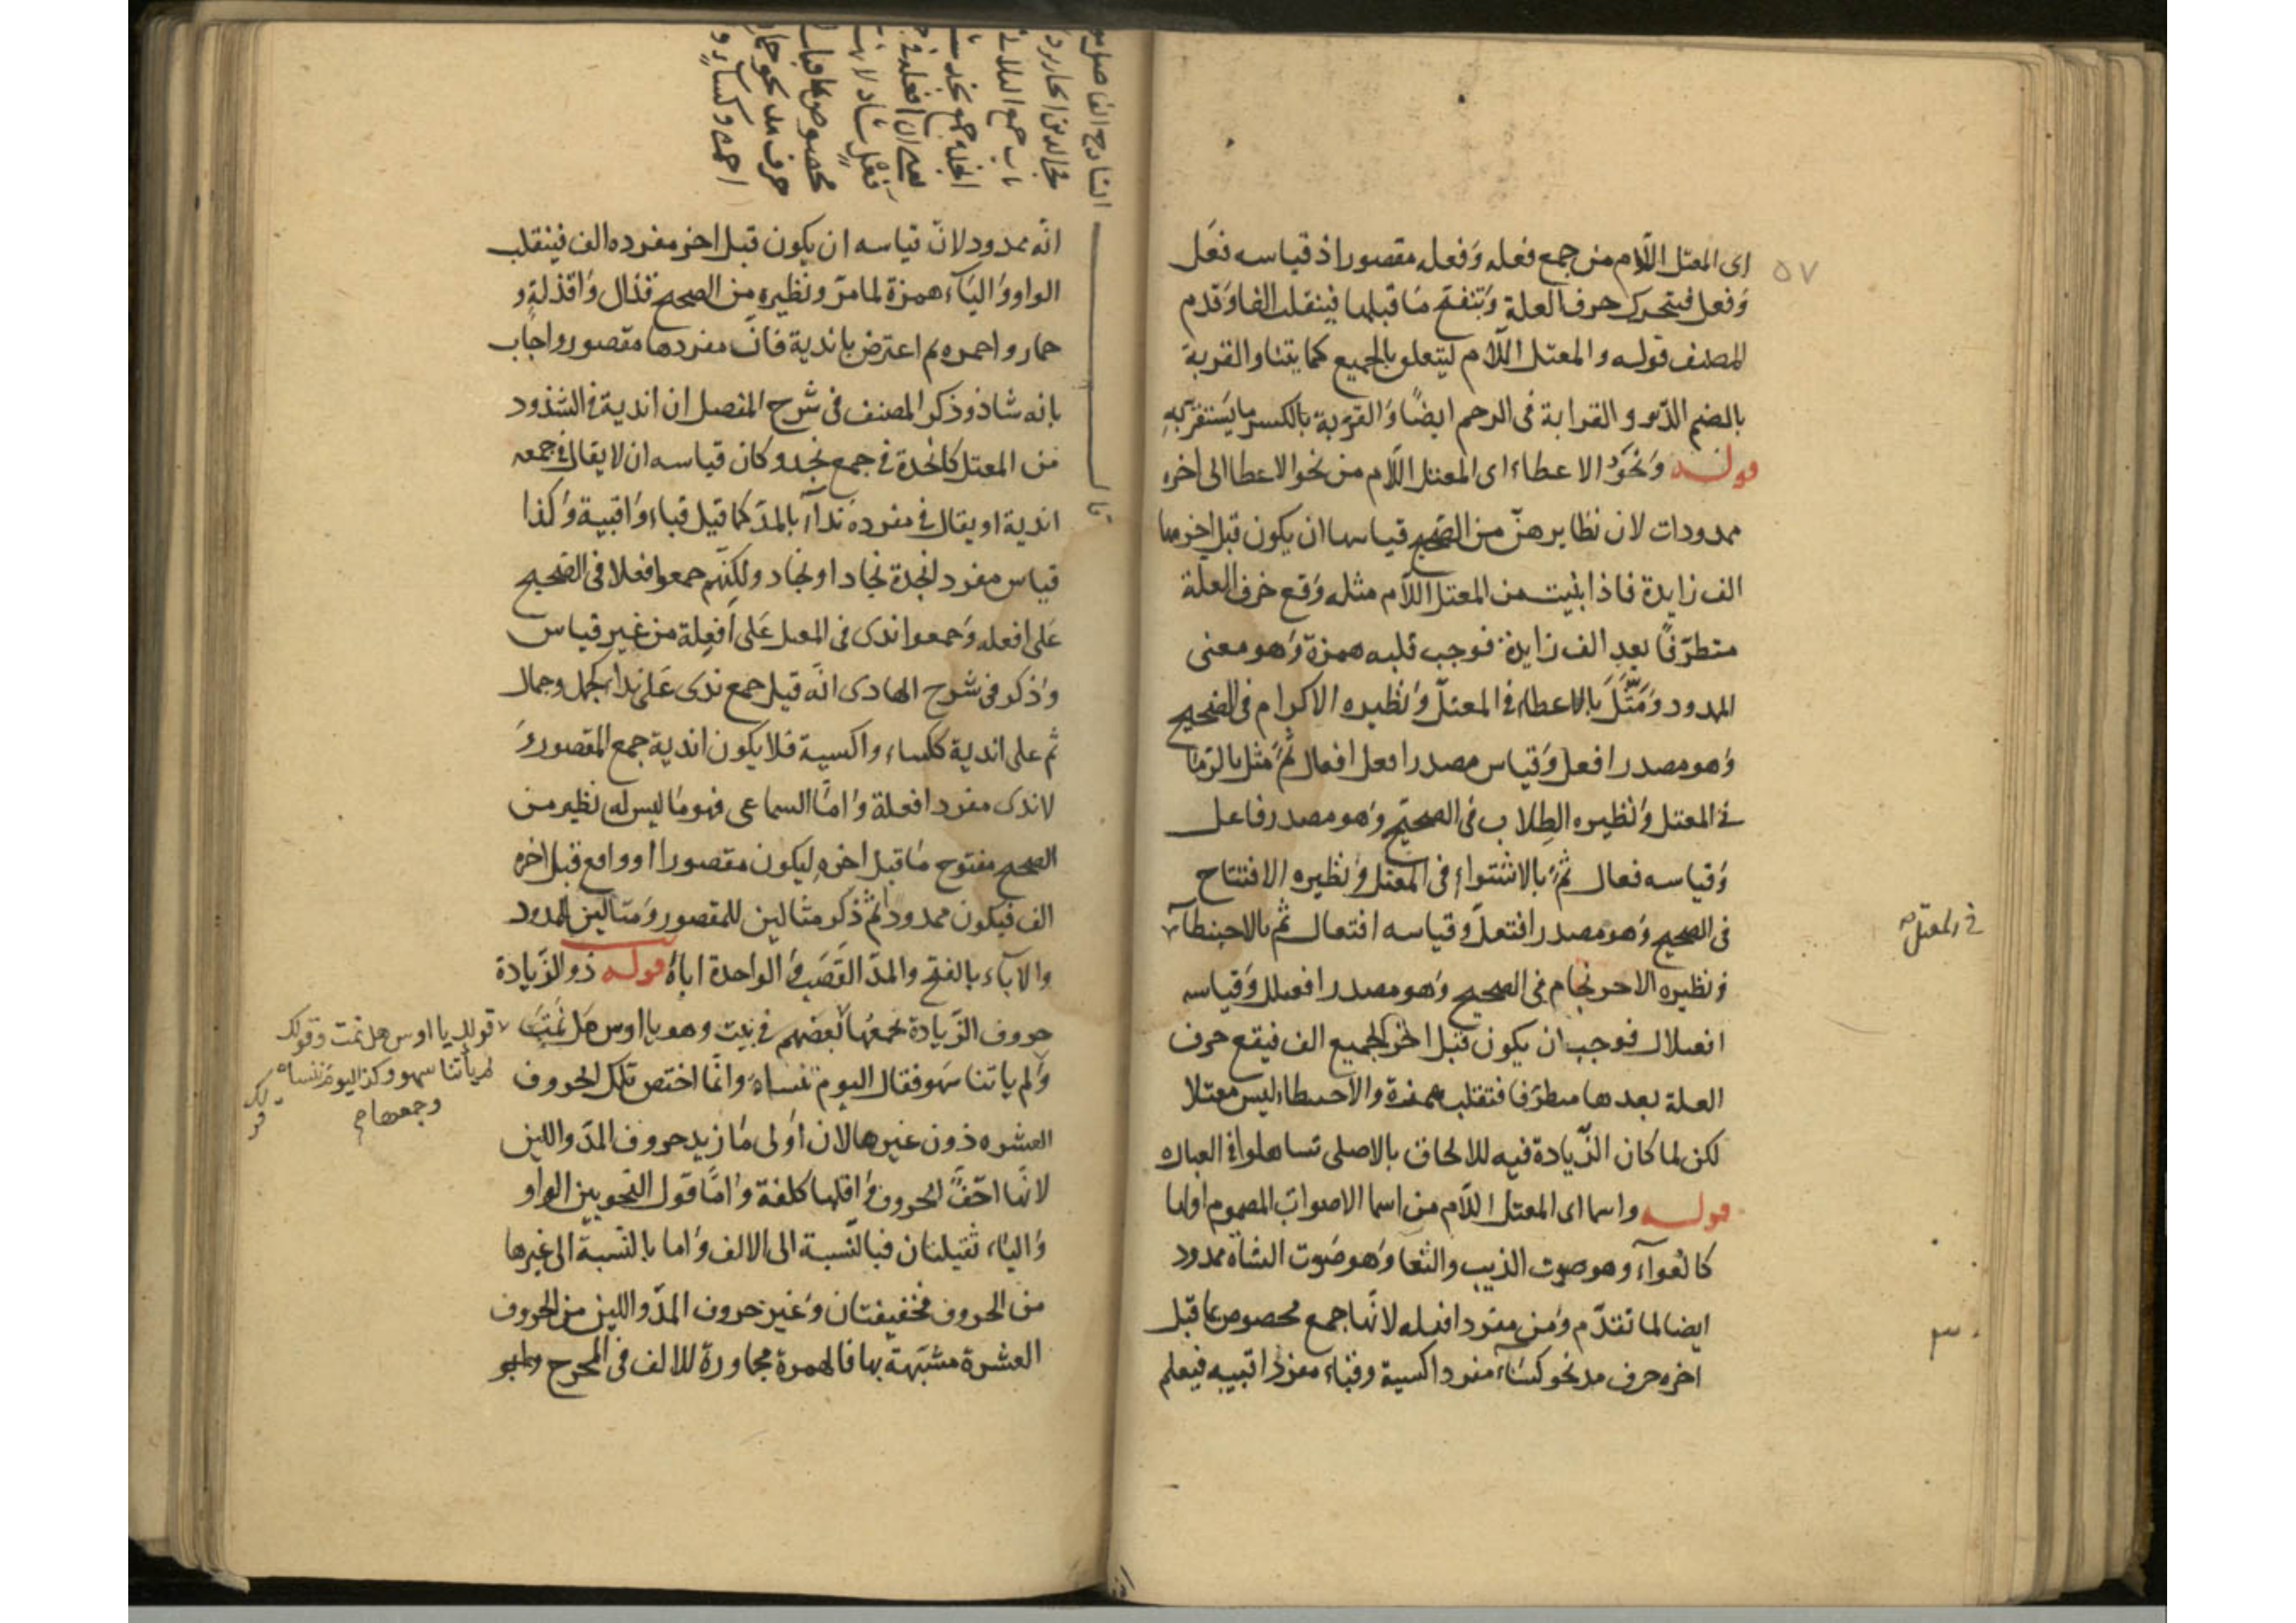 ٥٧
اى المعتل اللام من جمع فعله وفعله مقصورا اذ قياسه فعل
وفعل فيتحرك حرف العلة وينفتح ما قبلها فينقلب الفا وقدم
المصنف قوله والمعتل اللام ليتعلق بالجميع كما يتناو القربة
بالضم الدنو والقرابة فى الرحم ايضا والقربة بالكسر ما يستقر به
قوله ونحو الاعطاء اى المعتل اللام من نحو الاعطا الى اخره
ممدودات لان نظايرهن من الصحيح قياسها ان يكون قبل اخرها
الف زايدة فاذا بنيت من المعتل اللام مثله وقع حرف العلة
متطرفا بعد الف زايدة فوجب قلبه همزة وهو معنى
الممدود ومثل بالاعطاء فى المعتل ونظيره الاكرام فى الصحيح
وهو مصدر افعل وقياس مصدر افعل افعال ثم مثل بالرما
فى المعتل ونظيره الطلاب فى الصحيح وهو مصدر فاعل
وقياسه فعال ثم بالاشتواء فى المعتل ونظيره الافتتاح
فى الصحيح وهو مصدر افتعل وقياسه افتعال ثم بالاحبنطآء
فى المعتل
ونظيره الاحرنجام فى الصحيح وهو مصدر افعنلل وقياسه
افعنلال فوجب ان يكون قبل اخر الجميع الف فيقع حرف
العلة بعدها متطرفا فتقلب همزة والاحبنطاء ليس معتلا
لكن لما كان الزيادة فيه للالحاق بالاصلى تساهلوا فى العباره
قوله واسما اى المعتل اللام من اسما الاصوات المضموم اولها
كالعوآء وهو صوت الذيب والثغا وهو صوت الشاة ممدود
ايضا لما تقدم ومن مفرد افعله لانها جمع مخصوص بما قبل
اخره حرف مد نحو كساء مفرد اكسية وقباء مفرد اقبيه فيعلم
الشارح الفاضل
فخر الدين الجاربردى
احمره وكساء و
انه ممدود لان قياسه ان يكون قبل اخر مفرده الف فينقلب
الواو والياء همزة لما مر ونظيره من الصحيح قذال واقذلة و
حمار واحمره ثم اعترض باندية فان مفردها مقصور واجاب
بانه شاذ وذكر المصنف فى شرح المفصل ان اندية فى الشذوذ
من المعتل كانجدة فى جمع نجد وكان قياسه ان لا يقال فى جمعه
اندية او يقال فى مفرده ندآء بالمد كما قيل قباء واقبية وكذا
قياس مفرد انجدة نجاد او نجاد ولكنهم جمعوا فعلا فى الصحيح
على افعله وجمعوا ندى فى المعتل على افعلة من غير قياس
وذكر فى شرح الهادى انه قيل جمع ندى على نداء كجمل وجمال
ثم على اندية ككساء واكسية فلا يكون اندية جمع المقصور و
لا ندى مفرد افعلة واما السماعى فهو ما ليس له نظير من
الصحيح مفتوح ما قبل اخره ليكون مقصورا او واقع قبل اخره
الف فيكون ممدودا ثم ذكر مثالين للمقصور ومثالين للممدود
والاباء بالفتح والمد القصب والواحدة اباة قوله ذو الزيادة
حروف الزيادة جمعها بعضهم فى بيت وهو يا اوس هل نمت
ولم ياتنا سهو فقال اليوم تنساه وانما اختص تلك الحروف
العشره دون غيرها لان اولى ما زيد حروف المد واللين
لانها اخف الحروف واقلها كلفة واما قول النحويين الواو
والياء ثقيلتان فبالنسبة الى الالف واما بالنسبة الى غيرها
من الحروف فخفيفتان وغير حروف المد واللين من الحروف
العشرة مشبهة بها فالهمزة مجاورة للالف فى المخرج
قولك يا اوس هل نمت وقولك
لم يأتنا سهو وكذا اليوم تنساه
وجمعها